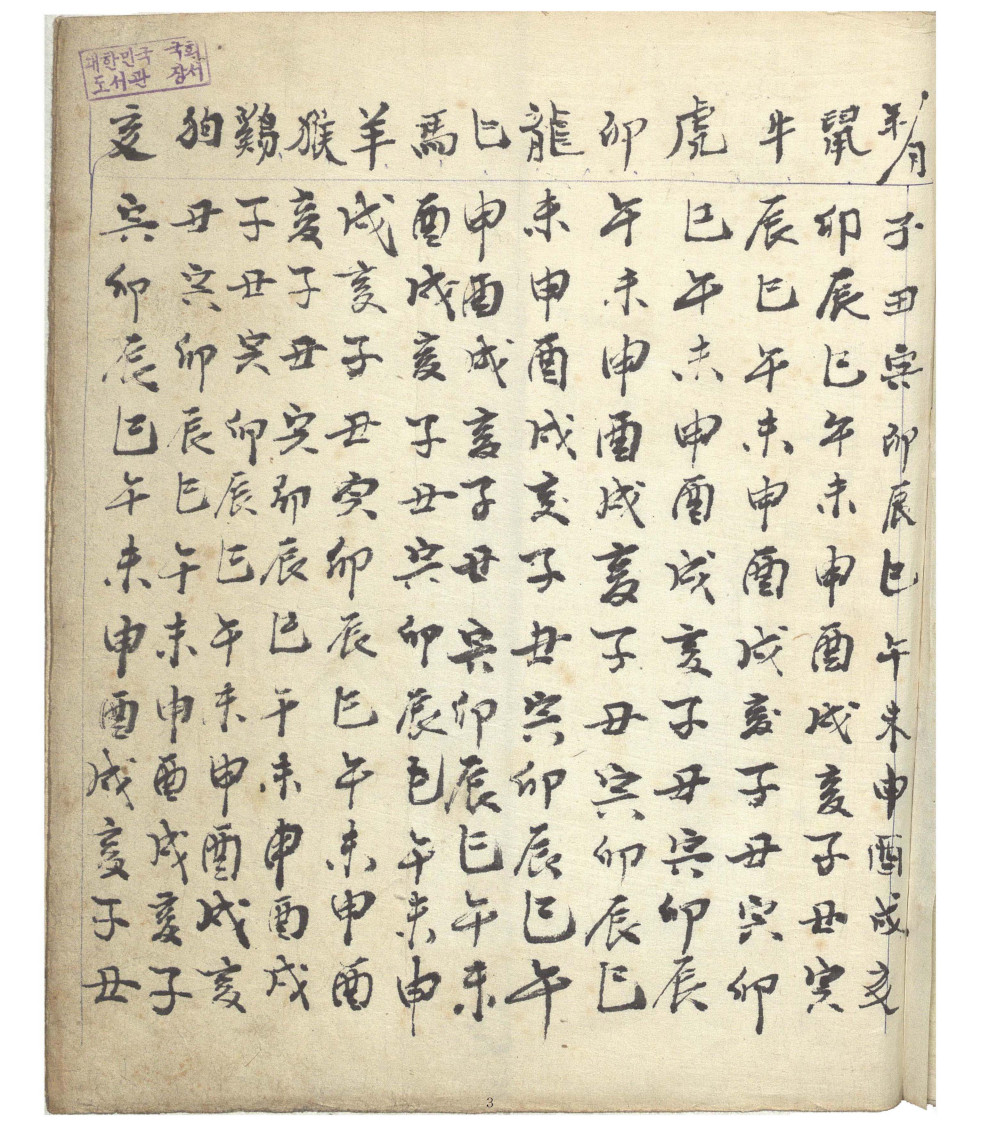 대한민국 국회
도서관 장서
年月子丑寅卯辰巳午未申酉戌亥
鼠卯辰巳午未申酉戌亥子丑寅
牛辰巳午未申酉戌亥子丑寅卯
虎巳午未申酉戌亥子丑寅卯辰
卯午未申酉戌亥子丑寅卯辰巳
龍未申酉戌亥子丑寅卯辰巳午
巳申酉戌亥子丑寅卯辰巳午未
馬酉戌亥子丑寅卯辰巳午未申
羊戌亥子丑寅卯辰巳午未申酉
猴亥子丑寅卯辰巳午未申酉戌
鷄子丑寅卯辰巳午未申酉戌亥
狗丑寅卯辰巳午未申酉戌亥子
亥寅卯辰巳午未申酉戌亥子丑
3